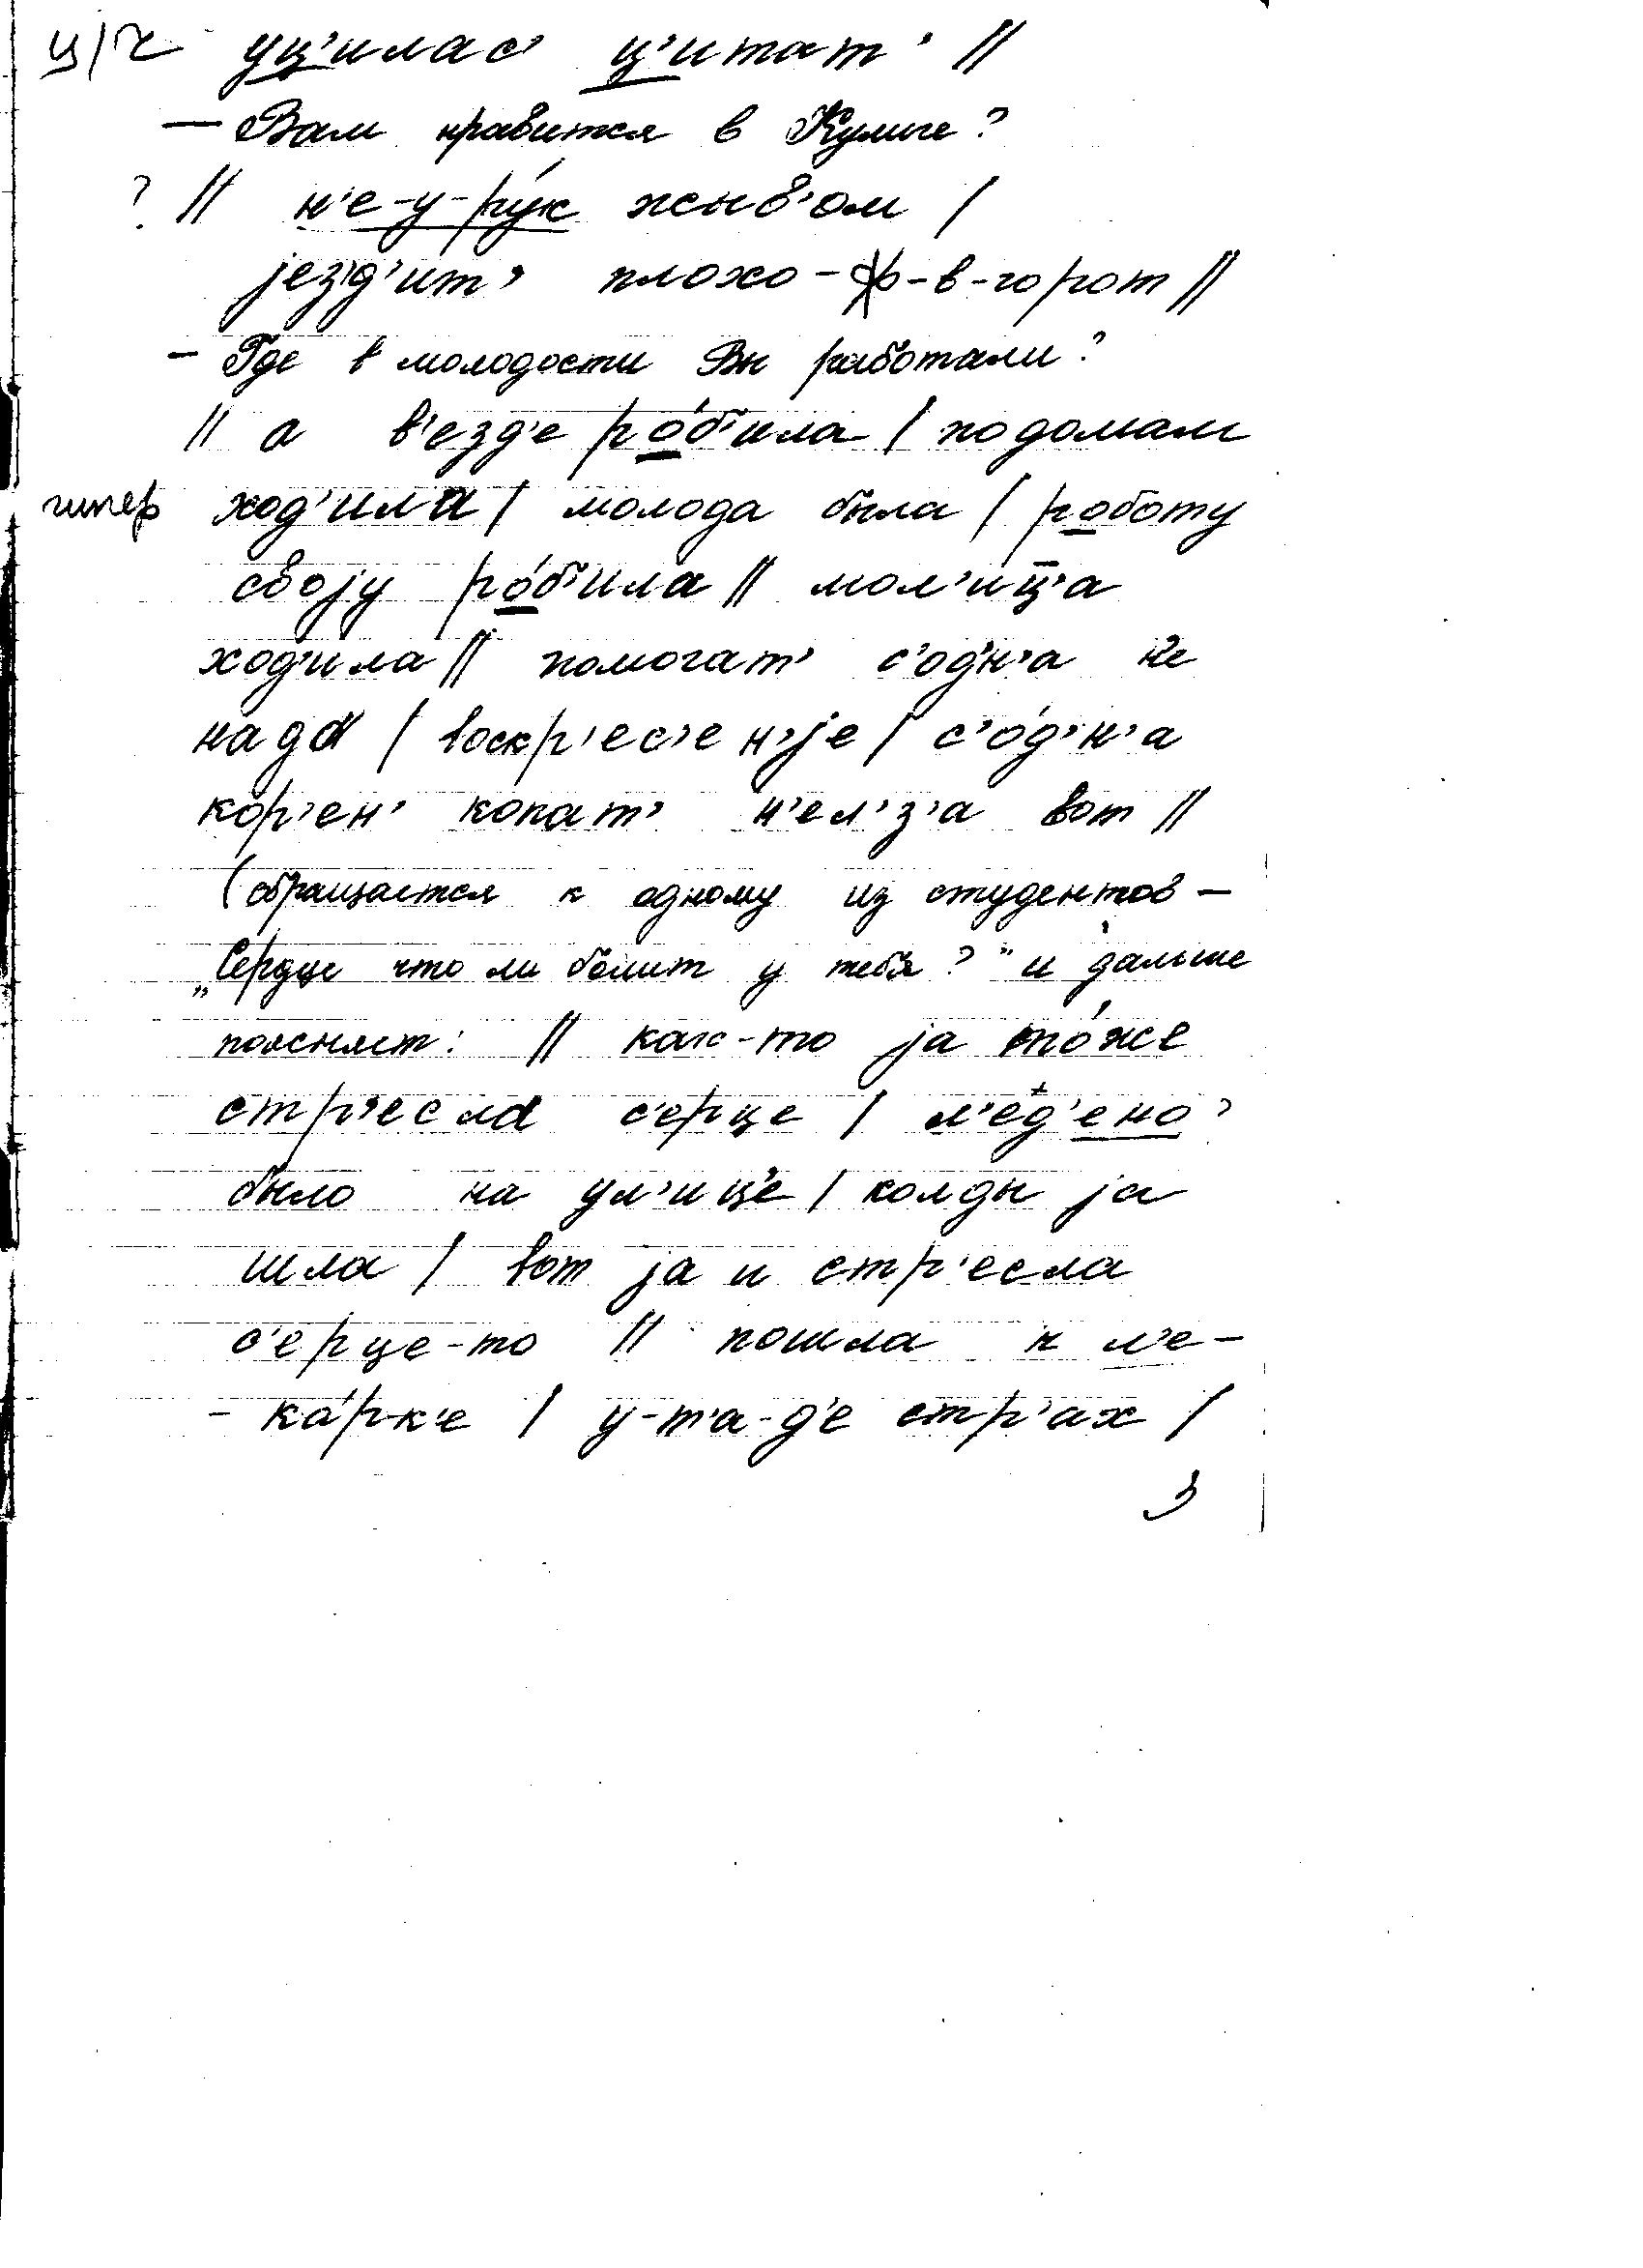 ц/ч уц'илас' ц'итат' //
— Вам нравится в Кулиге?
? // н'е-у-ру́к жыв'ом /
jез'д'ит' плохо-ф-в-горот //
- Где в молодости Вы работали?
// а в'езд'е ро́б'ила / подомам
гипер ход'ила / молода была / роботу
своjу ро́б'ила // мол'иц̄'а
ход'ила // помогат' с'од'н'а н'е
нада / воскр'ес'ен'jе / с'о́д'н'а
кор'ен' копат' н'ел'з'а вот //
(обращается к одному из студентов —
„Сердце что ли болит у тебя?" и дальше
поясняет: // как-то jа то́же
стр'есла с'ерце / л'е́д'ено?
было на ул'иц'е / колды jа
шла / вот jа и стр'есла
с'ерце-то // пошла к л'е-
- ка́рк'е / у-т'а-д'е стр'ах /
3